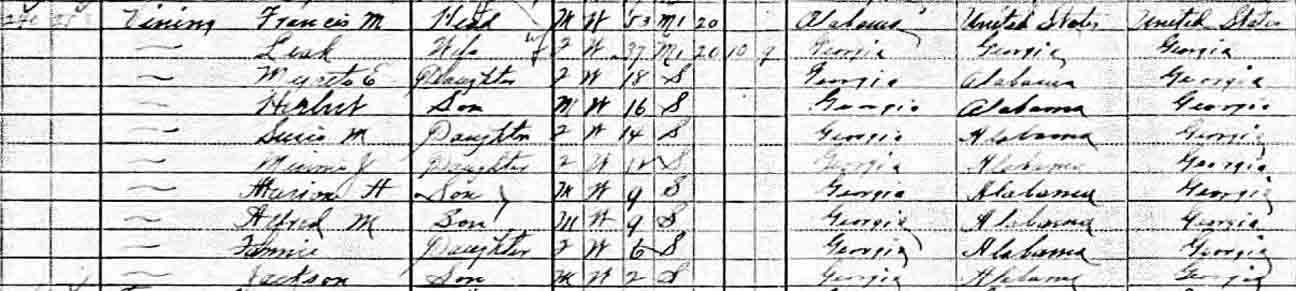 Vining Francis M Head M W 53 M1 20 Alabama United States United States
— Leah Wife F W 37 M1 20 10 9 Georgia Georgia Georgia
— E Daughter F W 18 S Georgia Alabama Georgia
— Herbert Son M W 16 S Georgia Alabama Georgia
— Susie M Daughter F W 14 S Georgia Alabama Georgia
— Minnie J Daughter F W 12 S Georgia Alabama Georgia
— Marion H Son M W 9 S Georgia Alabama Georgia
— Alfred M Son M W 9 S Georgia Alabama Georgia
— Fannie Daughter F W 6 S Georgia Alabama Georgia
— Jackson Son M W 2 S Georgia Alabama Georgia